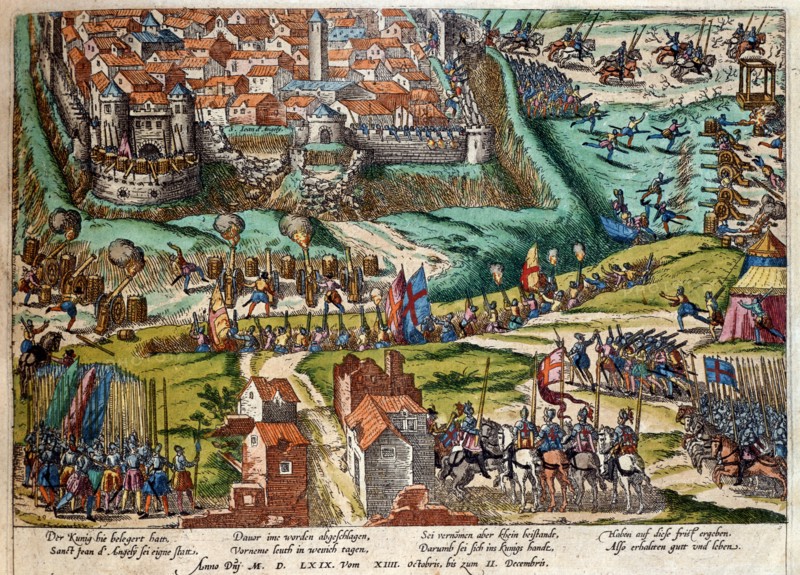 S. Iean d'Angely
Der Kunig hie belegert hatt.
Sanct Jean d'Angely sei eigne statt.
Davor ime worden abgeschlagen,
Vorneme leuth in wenich tagen,
Sei vernomen aber khein beistande,
Darumb sei sich ins Kunigs handt.
Haben auf diese frist ergeben.
Also erhallten gutt und leben.
Anno Dñi M. D. LXIX. Vom XIIII. Octobris, bis zum II. Decembris.